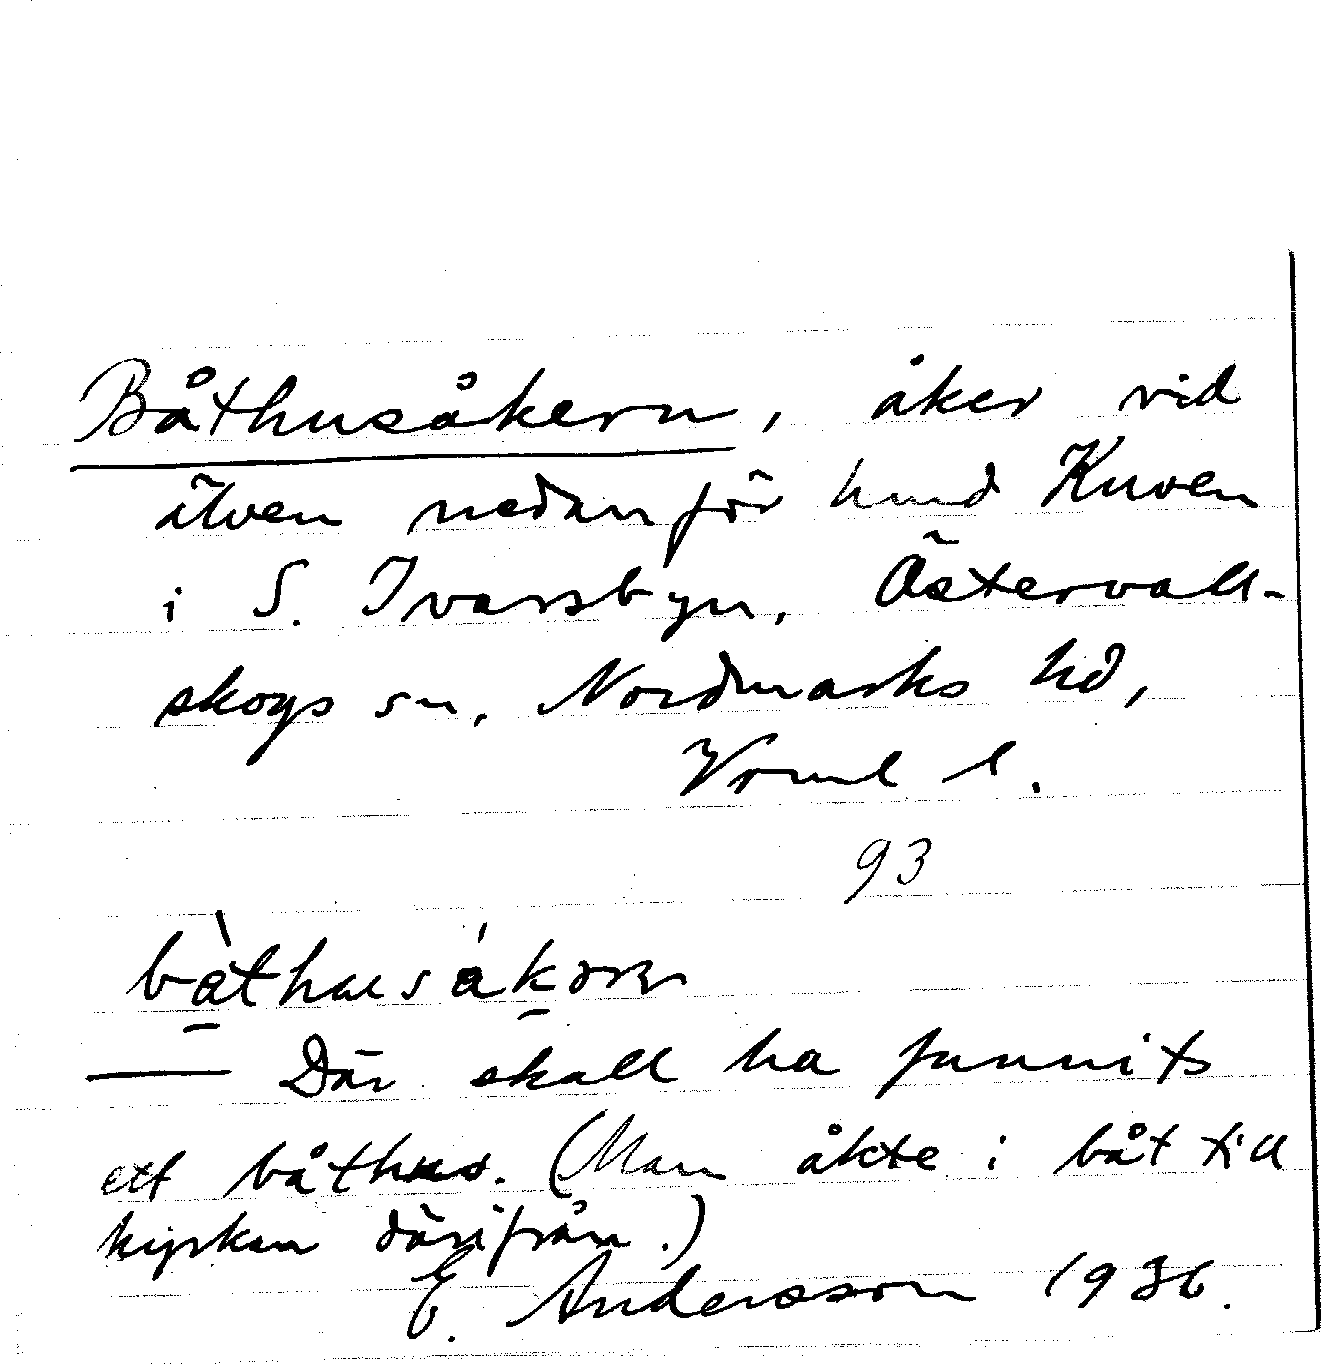 Båthusåkern, åker vid
älven nedanför hmd Kuven
i S. Ivarsbyn, Östervall-
skogs sn, Nordmarks hd,
Vrml l.
93
Där skall ha funnits
ett båthus. (Man åkte i båt till
kyrkan därifrån.)
E. Andersson 1936.